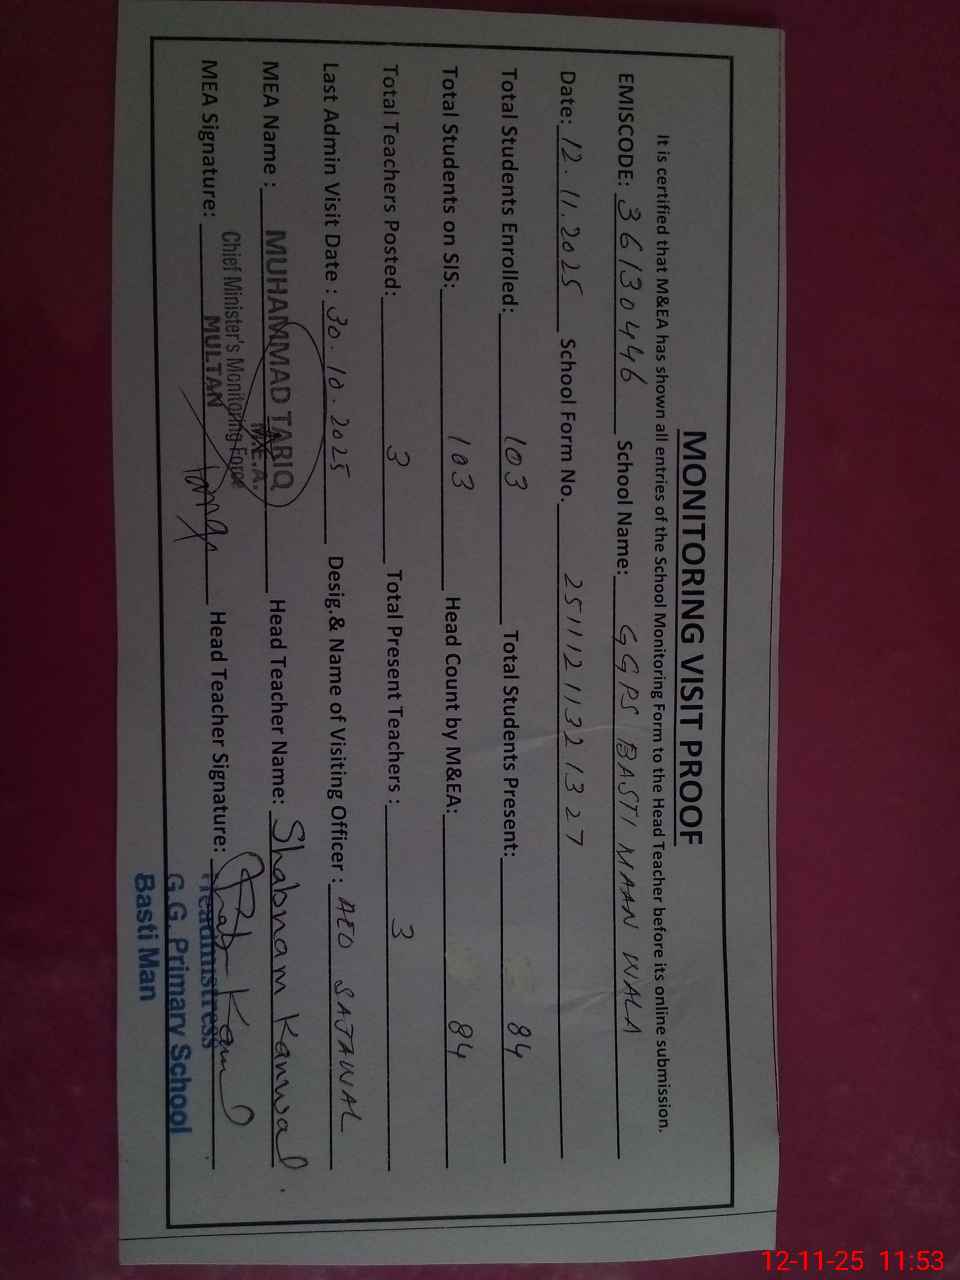 MONITORING VISIT PROOF
It is certified that M&EA has shown all entries of the School Monitoring Form to the Head Teacher before its online submission.
EMISCODE: 36130446 School Name: GGPS BASTI MAAN WALA
Date: 12.11.2025 School Form No. 2511121132 1327
Total Students Enrolled: 103 Total Students Present: 84
Total Students on SIS: 103 Head Count by M&EA: 84
Total Teachers Posted: 3 Total Present Teachers : 3
Last Admin Visit Date : 30.10.2025 Desig.& Name of Visiting Officer : AEO SAJAWAL
MEA Name : MUHAMMAD TARIQ Head Teacher Name: Shabnam Kanwal.
M.E.A.
Chief Minister's Monitoring Force
MULTAN
MEA Signature: Head Teacher Signature:
Headmistress
G.G. Primary School
Basti Man
12-11-25 11:53